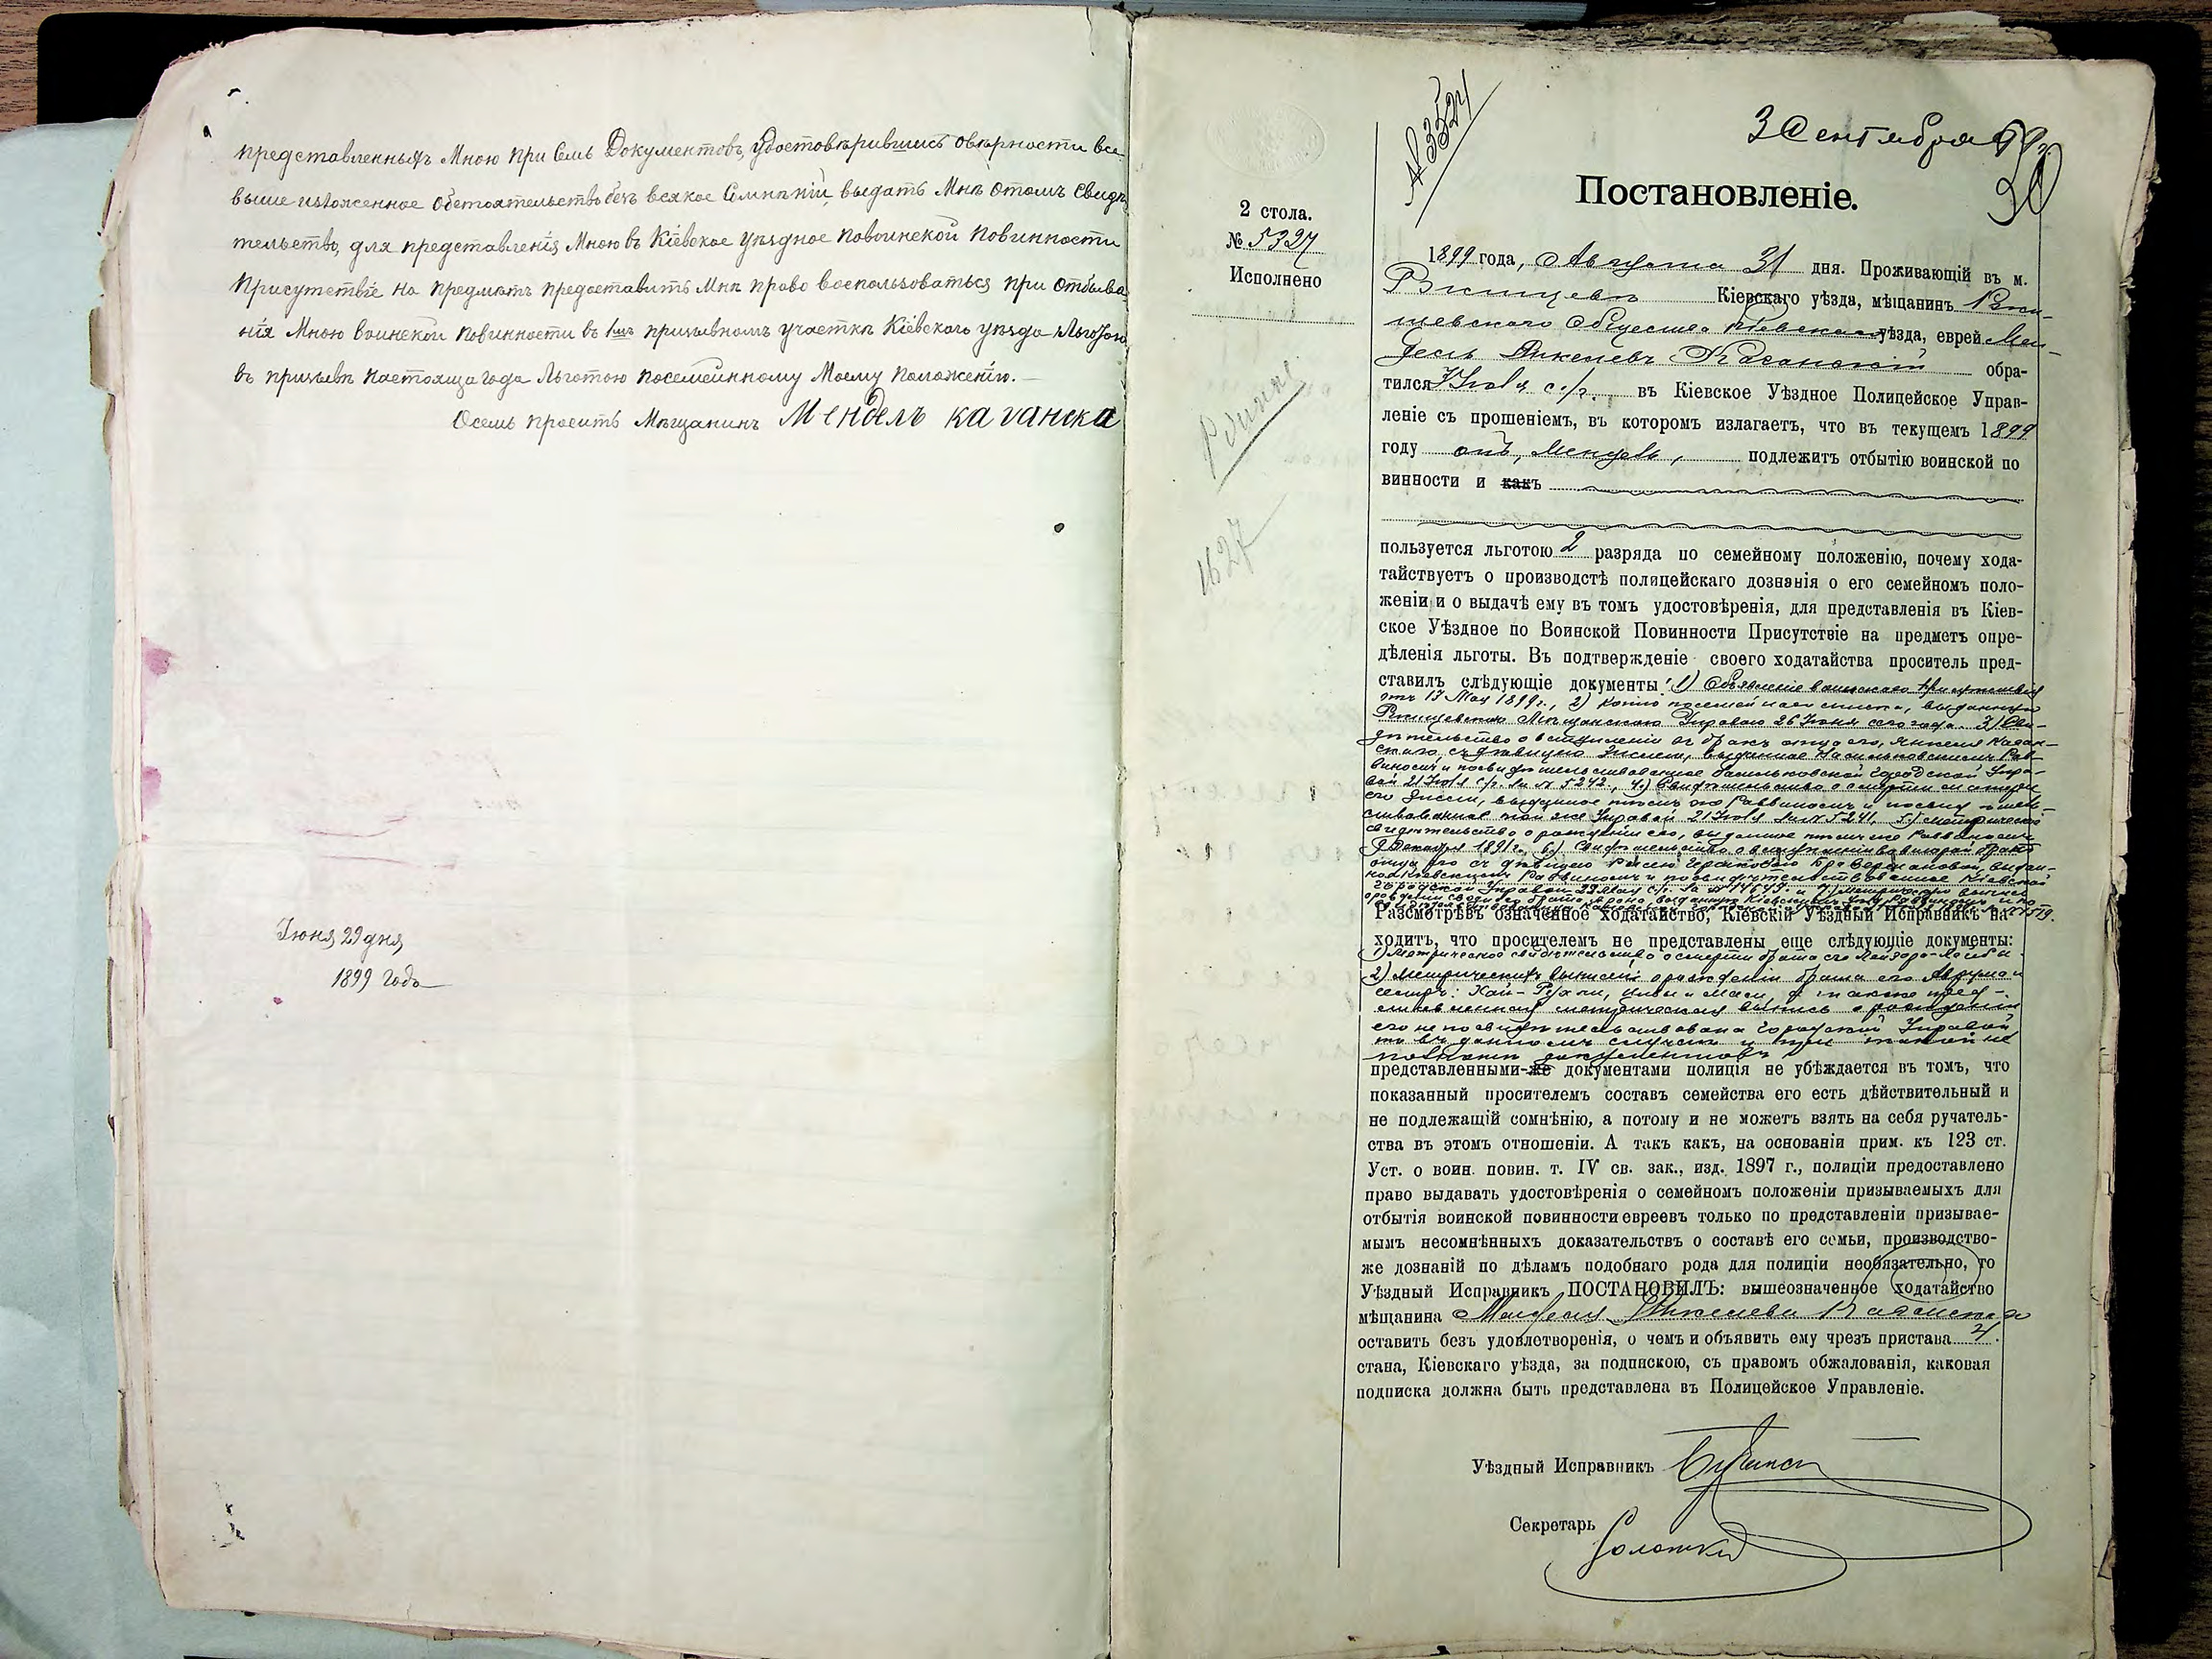 представленныхъ Мною при Семъ Документовъ, удостовѣрившись овѣрности все
выше изложенное обстоятельство безъ всякое Сомнѣній, выдать Мнѣ отомъ свидѣ
тельство, для представленія Мною въ Кіевское уѣздное повоинской повинности
Присутствіе на предмѣтъ предоставить Мнѣ право воспользоваться при отбыва
нія Мною воинской повинности въ 1мъ призывномъ участкѣ Кіевского уѣзда
въ призывѣ настояща года Льготою посемейнному Моему положенію.
Осемъ проситъ Мѣщанинъ Мендель каганска
Іюня 29 дня
1899 года
3 Сентября 99 г.
2 стола.
№ 5327
Исполнено
1627
Постановленіе.
1899 года, Августа 31 дня. Проживающій въ м.
Ржищевѣ Кіевскаго уѣзда, мѣщанинъ Ржи-
щевскаго общества Кіевскаго уѣзда, еврей Мен-
дель Янкелевъ Каганскій обра-
тился 7 Іюля с/г. въ Кіевское Уѣздное Полицейское Управ-
леніе съ прошеніемъ, въ котором излагаетъ, что въ текущемъ 1899
году онъ, Мендель, подлежитъ отбытію воинской по
винности и какъ
пользуется льготою 2 разряда по семейному положенію, почему хода-
тайствуетъ о производстѣ полицейскаго дознанія о его семейномъ поло-
женіи и о выдачѣ ему въ томъ удостовѣренія, для представленія въ Кіев-
ское Уѣздное по Воинской Повинности Присутствіе на предметъ опре-
дѣленія льготы. Въ подтвержденіе своего ходатайства проситель пред-
ставилъ слѣдующіе документы: 1) Объявленіе воинскаго присутствія
отъ 17 Мая 1899 г., 2) копію посемейнаго списка, выданную
Ржищевскою Мѣщанскою Управою 26 Іюня сего года. 3) Сви-
дѣтельство о вступленіи въ бракъ отца его, Янкеля Каган-
скаго съ дѣвицею выданное Васильковскимъ Рав-
виномъ и посвидѣтельствованное Васильковской Городской Упра-
вой 21 Іюля с/г. за № 5242, 4) Свидѣтельство о смерти матери
его выданное тѣмъ же Раввиномъ и посвидѣтель-
ствованное той же Управой 21 Іюля за № 5241, 5) метрическое
свидѣтельство о рожденіи его, выданное тѣмъ же Раввиномъ
9 Декабря 1891 г., 6) Свидѣтельство о вступленіи во второй бракъ
отца его съ дѣвицею выдан-
ное Кіевскимъ Раввиномъ и посвидѣтельствованное Кіевской
Городской Управой 29 Мая с/г. за № и 7) метрическую выпись
Разсмотрѣвъ означенное ходатайство, Кіевскій Уѣздный Исправникъ на-
ходитъ, что просителемъ не представлены еще слѣдующіе документы:
1) Метрическое свидѣтельство о смерти брата его
2) Метрическихъ выписей о рожденіи брата его Аврума и
сестръ: а также пред-
ставленная метрическая выпись о рожденіи
его не посвидѣтельствована городской Управой
то въ данномъ случаѣ и при такой не
полнотѣ документовъ
представленными-же документами полиція не убѣждается въ томъ, что
показанный просителемъ составъ семейства его есть дѣйствительный и
не подлежащій сомнѣнію, а потому и не можетъ взять на себя ручатель-
ства въ этомъ отношеніи. А такъ какъ, на основаніи прим. къ 123 ст.
Уст. о воин. повин. т. IV св. зак., изд. 1897 г., полиціи предоставлено
право выдавать удостовѣренія о семейномъ положеніи призываемыхъ для
отбытія воинской повинности евреевъ только по представленіи призывае-
мымъ несомнѣнныхъ доказательствъ о составѣ его семьи, производство-
же дознаній по дѣламъ подобнаго рода для полиціи необязательно, то
Уѣздный Исправникъ ПОСТАНОВИЛЪ: вышеозначенное ходатайство
мѣщанина Менделя Янкелева Каганскаго
оставить безъ удовлетворенія, о чемъ и объявить ему чрезъ пристава 4
стана, Кіевскаго уѣзда, за подпискою, съ правомъ обжалованія, каковая
подписка должна быть представлена въ Полицейское Управленіе.
Уѣздный Исправникъ
Секретарь